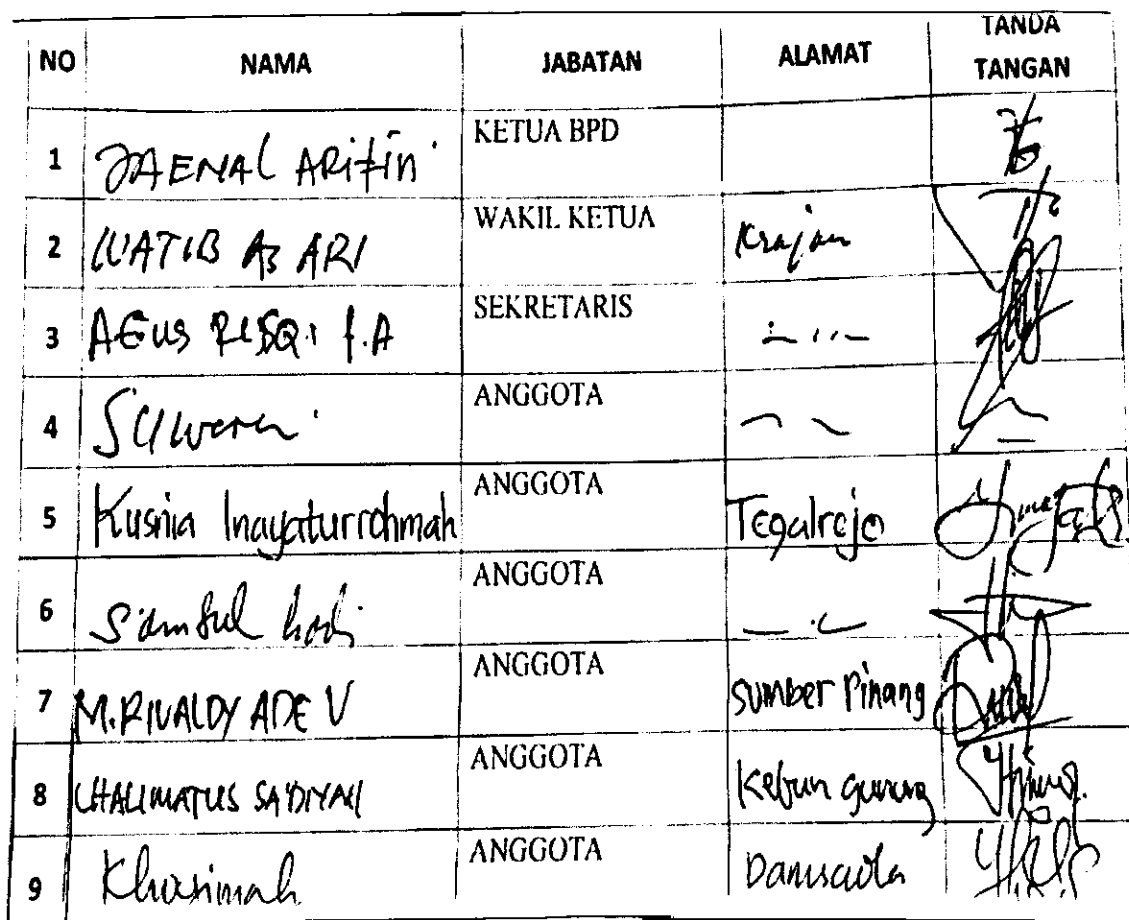 NO NAMA JABATAN ALAMAT TANDA TANGAN
1 JAENAL ARifin KETUA BPD
2 WATIB AS ARI WAKIL KETUA Krajan
3 AGUS RISQI F.A SEKRETARIS
4 ANGGOTA
5 Kusnia Inayaturrohmah ANGGOTA Tegalrejo
6 Samsul hadi ANGGOTA
7 M. RIVALDY ADE V ANGGOTA Sumber Pinang
8 CHALIMATUS SA'DIYAH ANGGOTA Kebun gunung
9 Khusimah ANGGOTA